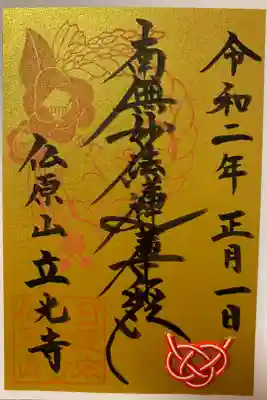 令和二年 正月一日
南無妙法蓮華経
仏原山立光寺